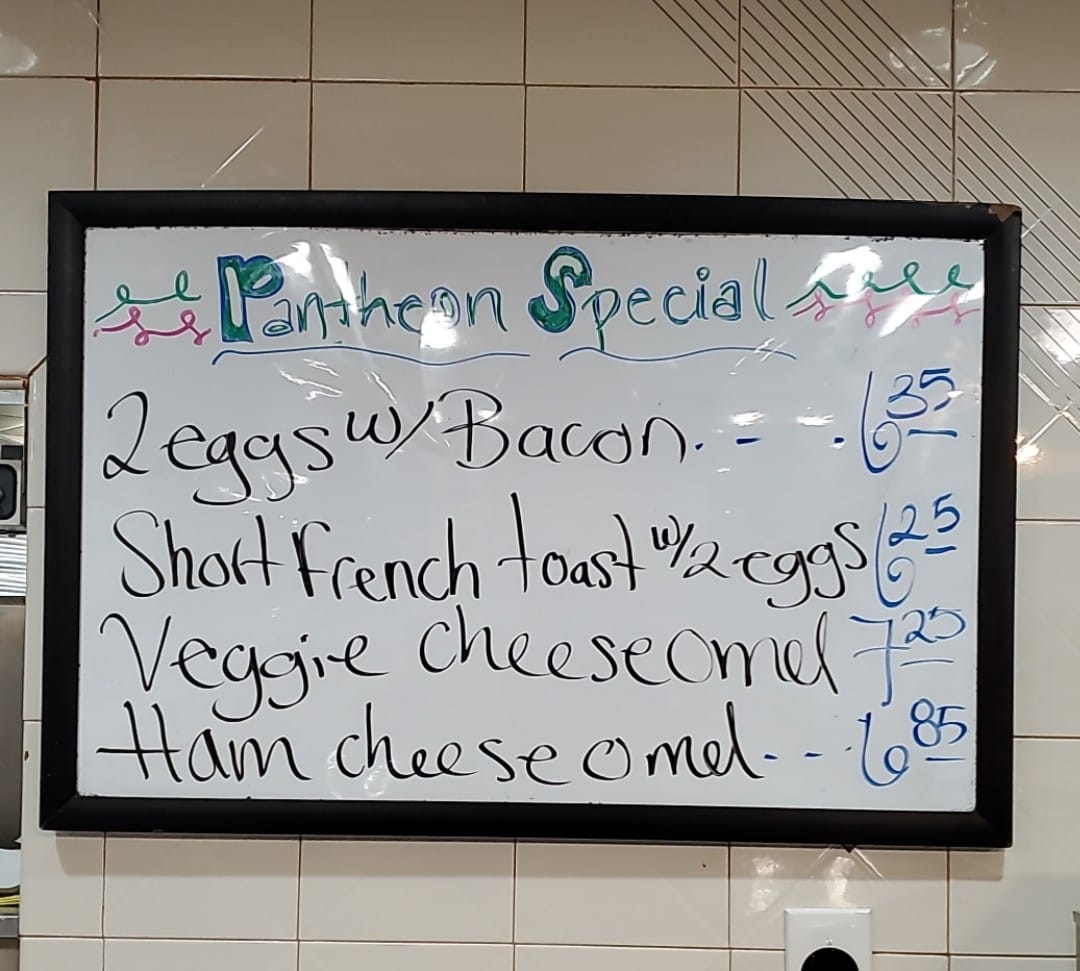 Pantheon Special
2 eggs w/ Bacon. - - . 6 35
Short French toast w/ 2 eggs 6 25
Veggie cheese omel 7 25
Ham cheese omel - - . 6 85